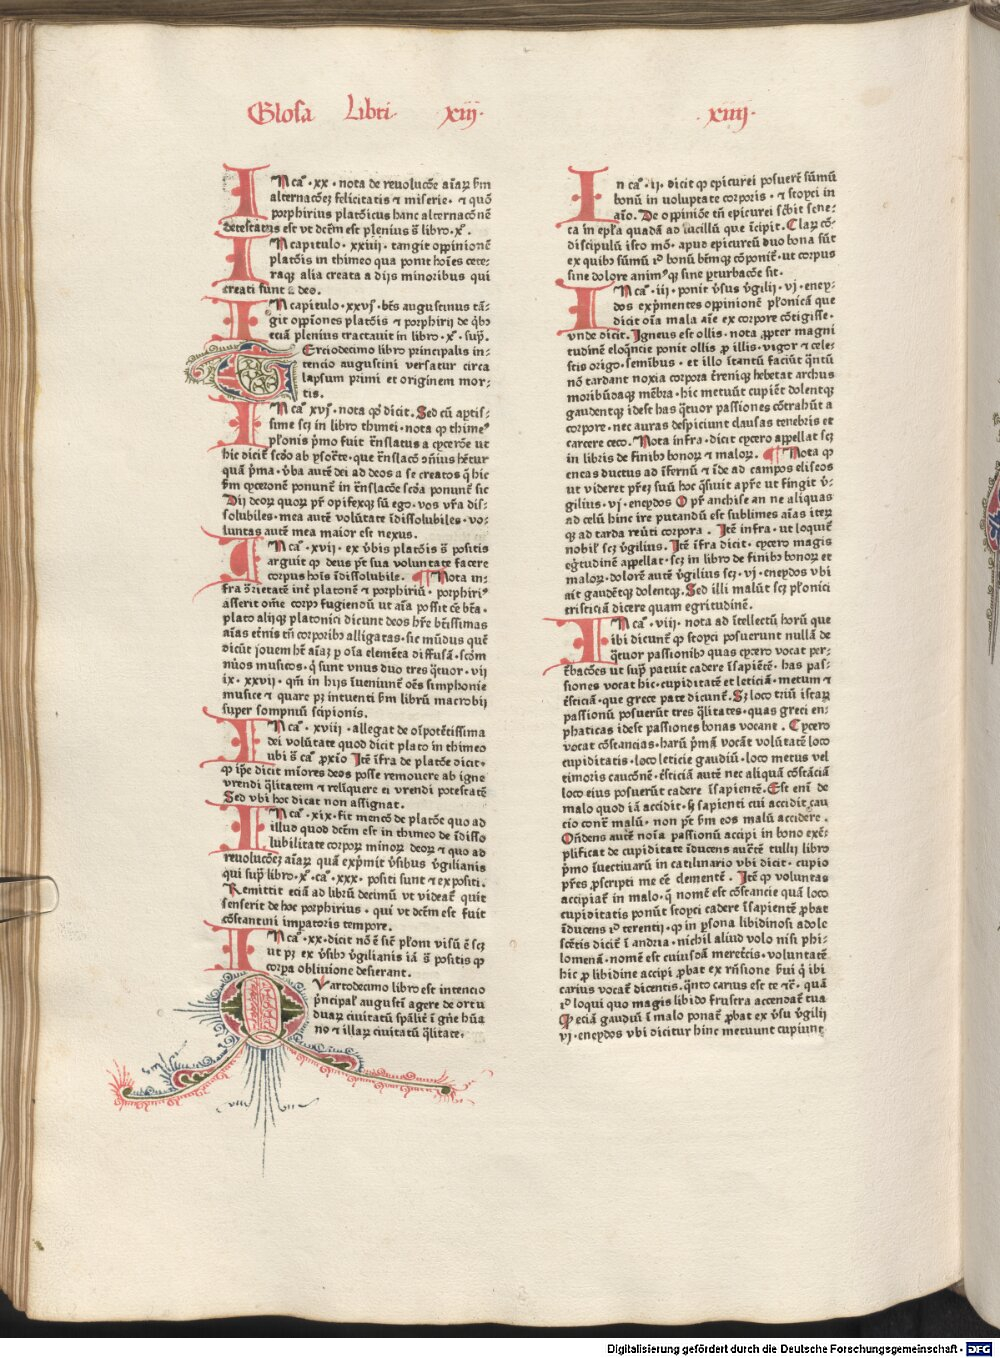 Glosa Libri xiij· ·xiiij·
IN ca͂ ·xx· nota de reuoluco͂e ai͂aꝝ ẜm
alternaco͂eȝ felicitatis ⁊ miserie· ⁊ quō
porphirius platōicus hanc alternacōnē
detestatus est vt dcm̄ est plenius s̄ libro·xͦ·
IN capitulo·xxiiij· tangit oppinionē
platōis in thimeo qua ponit hoi͂es cete-
raqꝫ alia creata a dijs minoribus qui
creati sunt a deo.
IN capitulo·xxvj· bt͂s augustinus tā-
git oppiōnes platōis ⁊ porphirij de q̄bꝰ
eciā plenius tractauit in libro·xͦ·sup̄.
TErciodecimo libro principalis in-
tencio augustini versatur circa
lapsum primi et originem mor-
tis.
IN ca͂ xvj· nota qꝫ dicit. Sed cū aptis-
sime scꝫ in libro thimei·nota ꝙ thimeꝰ
pl͂onis p̄mo fuit tn̄slatus a cycerōe ut
hic dicit̄ scd̄o ab
quā p̄ma· v̄ba autē dei ad deos a se creatos q̄ hic
ẜm cyceronē ponunt̄ in tn̄slacōe scd̄a ponunt̄ sic
Dij deoꝝ quoꝝ pr̄ opifexqꝫ sū ego·vos vr̄a dis-
solubiles·mea autē volūtate īdissolubiles·vo-
luntas autē mea maior est nexus.
IN ca͂ ·xvij· ex v̄bis platōis s̄ positis
arguit ꝙ deus pt̄ sua voluntate facere
corpus hoi͂s īdissolubile. ¶ Nota in-
fra 9rietatē int̄ platonē ⁊ porphiriū· porphiriꝰ
asserit om̄e corpꝰ fugiendū ut ai͂a possit ee͂ bt͂a·
plato alijqꝫ platonici dicunt deos hr̄e bt͂issimas
ai͂as et͂nis tn̄ corporibꝫ alligatas·sic mūdus quē
dicūt jouem hē ai͂aꝫ ꝑ oi͂a elemēta diffusā·scd̄m
nūos musicos·q̄ sunt vnus duo tres q̄tuor·vij
ix·xxvij·qm̄ in hijs īueniunt̄ oēs simphonie
musice ⁊ quare pꝫ intuenti ẜm librū macrobij
super sompniū scipionis.
IN ca͂ ·xviij·allegat de oi͂potētissima
dei volūtate quod dicit plato in thimeo
ubi s̄ ca͂ ꝓxīo Itē īfra de platōe dicit·
ꝙ ip̄e dicit mīores deos posse remouere ab igne
vrendi q̄litatem ⁊ relīquere ei vrendi potestatē
Sed vbi hoc dicat non assignat.
IN ca͂ ·xix·fit mencō de platōe quo ad
illud quod dcm̄ est in thimeo de īdisso
lubilitate corpoꝝ minoꝝ deoꝝ ⁊ quo ad
reuolucōeȝ ai͂aꝝ quā exp̄mit v̄sibus v̄gilianis
qui sup̄ libro·xͦ·ca͂·xxx·positi sunt ⁊ expositi.
Remittit eciā ad librū decimū vt videat̄ quit
senserit de hoc porphirius·qui vt dcm̄ est fuit
cōstantini impatoris tempore.
IN ca͂ ·xx·dicit nō ē sic pl͂oni visū ē scꝫ
ut pꝫ ex v̄sibꝰ v̄gilianis iā s̄ positis ꝙ
corpa obliuione desierant.
QVartodecimo libro est intencio
p̄ncipal̄ augustī agere de ortu
duaꝝ ciuitatū spāli͂t ī gn̄e hūa
no ⁊ illaꝝ ciuitatū q̄litate.
IN ca͂ ·ij·dicit ꝙ epicurei posuer̄t sūmū
bonū in voluptate corporis·⁊ stoyci in
ai͂o. De oppiniōe tn̄ epicurei scbit sene-
ca in epl͂a quadā ad lucillū que īcipit. Claꝝ cō-
discipulū isto mō·apud epicureū duo bona sūt
ex quibꝫ sūmū iͩ bonū bt͂mqꝫ cōponit̄·ut corpus
sine dolore animꝰqꝫ sine ꝑturbacōe sit.
IN ca͂ ·iij·ponit v̄sus v̄gilij·vj·eney-
dos exp̄mentes oppinionē pl͂onicā que
dicit oi͂a mala ai͂e ex corpore cōtigisse·
vnde dicit. Igneus est ollis·nota ꝓpter magni
tudinē eloq̄ncie ponit ollis ꝓ illis·vigor ⁊ cele-
stis origo·semibus·et illo īstantū faciūt q̄ntū
nō tardant noxia corpora tr̄enīqꝫ hebetāt archus
moribūdaqꝫ mēbra·hic metuūt cupiēt dolentqꝫ
gaudentqꝫ idest has q̄tuor passiones cōtrahūt a
corpore·nec auras despiciunt clausas tenebris et
carcere ceco. Nota infra·dicit cycero appellat scꝫ
in libris de finibꝫ bonoꝝ ⁊ maloꝝ. ¶ Nota ꝙ
eneas ductus ad īfernū ⁊ īde ad campos eliseos
ut videret pr̄eꝫ suū hoc q̄siuit apr̄e ut fingit v̄-
gilius·vj·eneydos O pr̄ anchise an ne aliquas
ad celū hinc ire putandū est sublimes ai͂as iteꝝ
qꝫ ad tarda reūti corpora. Itē infra·ut loquit̄
nobil̄ scꝫ v̄gilius. Itē īfra dicit·cycero magis
eḡtudinē appellat·scꝫ in libro de finibꝫ bonoꝝ et
maloꝝ·dolorē autē v̄gilius scꝫ·vj·eneydos vbi
ait gaudētqꝫ dolentqꝫ. Sed illi malūt scꝫ pl͂onici
tristiciā dicere quam egritudinē.
IN ca͂ ·viij·nota ad ītellectū horū que
ibi dicunt̄ ꝙ stoyci posuerunt nullā de
q̄tuor passionibꝫ quas cycero vocat per-
t̄bacōes ut sup̄ patuit cadere īsapiētē·has pas-
siones vocat hic·cupiditatē et leticiā·metum ⁊
t̄sticiā·que grece pate dicunt̄. Sꝫ loco triū istaꝝ
passionū posuerūt tres q̄litates·quas greci en-
phaticas idest passiones bonas vocant. Cycero
vocat cōstancias·harū p̄mā vocāt volūtatē loco
cupiditatis·loco leticie gaudiū·loco metus vel
timoris caucōnē·t̄sticiā autē nec aliquā cōstāciā
loco eius posuerūt cadere īsapientē. Est eni͂ de
malo quod iā accidit·ꝗ sapienti cui accidit cau
cio contͣ malū·non pt̄ ẜm eos malū accidere.
Ondens autē noi͂a passionū accipi in bono exē-
plificat de cupiditate īducens auct̄ē tullij libro
p̄mo īuectiuarū in catilinario vbi dicit·cupio
pr̄es ꝓscripti me ee͂ clementē. Itē ꝙ voluntas
accipiat̄ in malo·q̄ nomē est cōstancie quā loco
cupiditatis ponūt stoyci cadere īsapientē ꝓbat
īducens iͩ terentij·ꝙ in ꝑsona libidinosi adole
scētis dicit̄ ī andria·nichil aliud volo nisi phi-
lomenā·nomē est cuiusdā meret̄cis·voluntatē
hic ꝓ libidine accipi ꝓbat ex rn̄sione ẜui q̄ ibi
carius vocat̄ dicentis·q̄nto carius est te ⁊cͣ·quā
iͩ loqui quo magis libido frustra accendat̄ tua
Qꝫ eciā gaudiū ī malo ponat̄ ꝓbat ex v̄su v̄gilij
vj·eneydos vbi dicitur hinc metuunt cupiunt
Digitalisierung gefördert durch die Deutsche Forschungsgemeinschaft - DFG